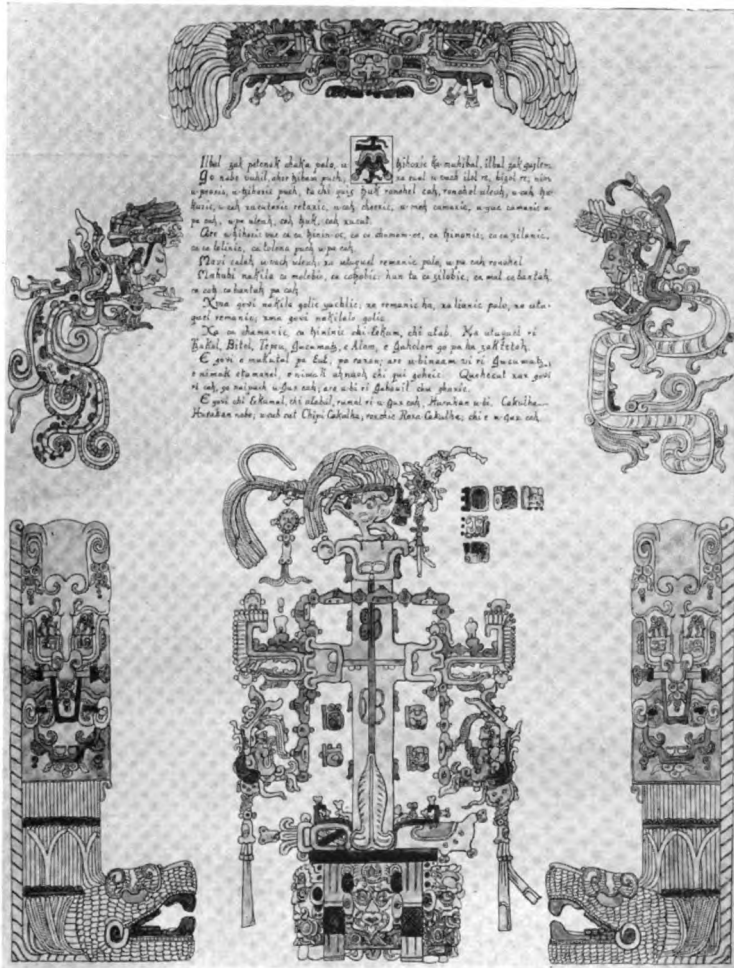 Ilbal zak petenak chaka palo, u tzihoxic ka muhibal, ilbal zak qazlem.
Go nabe vuhil, oher tzibam puch, xa eval u vach ilol re, bizol re; nim
u peoxic, u tzihoxic puch, ta chi quiz tzuk ronohel cah, ronohel uleuh, u cah tzu-
kuxic, u cah xucutaxic retaxic, u cah cheexic, u meh camaxic, u yuc camaxic u-
pa cah, u pa uleuh, cah tzuk, cah xucut.
Are u tzihoxic vae ca ca tzinin-oc, ca ca chamam-oc, ca tzinonic; ca ca zilanic,
ca ca lolinic, ca tolona puch u pa cah.
Mavi calah u vach uleuh: xa utuquel remanic palo, u pa cah ronohel.
Mahabi nakila ca molobic, ca cotzobic: hun ta ca zilobic; ca mal ca bantah,
ca cotz ca bantah pa cah.
Xma govi nakila golic yacalic; xa remanic ha, xa lianic palo, xa utu-
quel remanic; xma govi nakilalo golic.
Xa ca chamanic, ca tzininic chi gekum, chi akab. Xa utuquel ri
Tzakol, Bitol, Tepeu, Qucumatz, e Alom, e Qaholom go pa ha zaktetoh.
E govi e mukutal pa guc, pa raxon; are u binaam vi ri Gucumatz,
e nimak etamanel, e nimak ahnaoh chi qui qoheic. Quehecut xax govi
ri cah, go naipuch u Qux cah; are u bi ri Qabauil chu qhaxic.
E govi chi gekumal, chi akabal, rumal ri u Qux cah, Hurakan u bi. Cakulha
Hurakan nabe; u cab cut Chipi Cakulha; rox chic Raxa Cakulha; chi e u Qux cah.